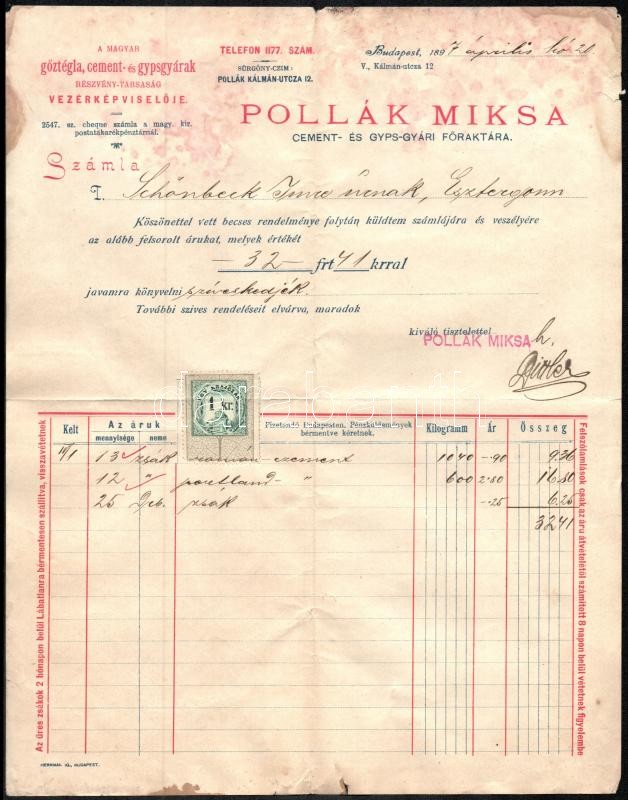 A MAGYAR
gőztégla, cement- és gypsgyárak
RÉSZVÉNY-TÁRSASÁG
VEZÉRKÉPVISELŐJE.
2547. sz. cheque számla a magy. kir.
postatakarékpénztárnál.
TELEFON 1177. SZÁM.
SÜRGÖNY-CZIM:
POLLÁK KÁLMÁN-UTCZA 12.
Budapest, 1897 április hó 20
V., Kálmán-utcza 12
POLLÁK MIKSA
CEMENT- ÉS GYPS-GYÁRI FŐRAKTÁRA.
Számla
T. Schönbeck Imre úrnak, Esztergom
Köszönettel vett becses rendelménye folytán küldtem számlájára és veszélyére
az alább felsorolt árukat, melyek értékét
—32— frt 41 krral
javamra könyvelni szíveskedjék.
További szives rendeléseit elvárva, maradok
kiváló tisztelettel
POLLÁK MIKSA
1 Kr.
Kelt Az áruk mennyisége neme Fizetendő Budapesten. Pénzküldemények bérmentve kéretnek. Kilogramm Ár Összeg
13 zsák román czement 1040 —90 9.36
12 " portland— " 600 2.80 16.80
25 Drb. zsák —.25 6.25
3241
Az üres zsákok 2 hónapon belül Lábatlanra bérmentesen szállitva, visszavétetnek
Felszólamlások csak az áru átvételétől számitott 8 napon belül vétetnek figyelembe
HERRMAN IG., BUDAPEST.